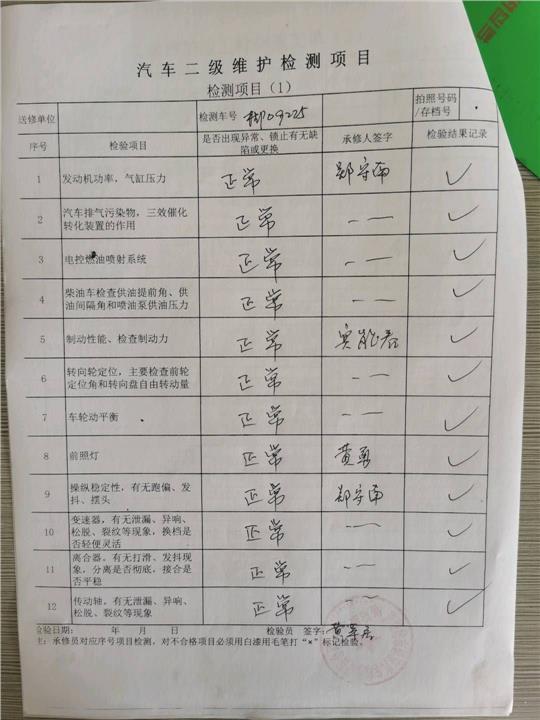 汽车二级维护检测项目
检测项目（1）
送修单位
检测车号
拍照号码
/存档号
序号
检验项目
是否出现异常、锁止有无缺
陷或更换
承修人签字
检验结果记录
1 发动机功率，气缸压力 正常 ✓
2 汽车排气污染物，三效催化
转化装置的作用 正常 — — ✓
3 电控燃油喷射系统 正常 — — ✓
4 柴油车检查供油提前角、供
油间隔角和喷油泵供油压力 正常 — — ✓
5 制动性能、检查制动力 正常 ✓
6 转向轮定位，主要检查前轮
定位角和转向盘自由转动量 正常 — — ✓
7 车轮动平衡 正常 — — ✓
8 前照灯 正常 黄勇 ✓
9 操纵稳定性，有无跑偏、发
抖、摆头 正常 ✓
10 变速器，有无泄漏、异响、
松脱、裂纹等现象，换档是
否轻便灵活 正常 — — ✓
11 离合器，有无打滑、发抖现
象，分离是否彻底，接合是
否平稳 正常 — — ✓
12 传动轴，有无泄漏、异响、
松脱、裂纹等现象 正常 — — ✓
检验日期： 年 月 日 检验员 签字：
主：承修员对应序号项目检测，对不合格项目必须用白漆用毛笔打“×”标记检验。